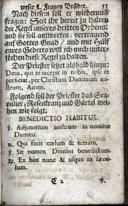 unser L. Frawen Brüder. 53
Nach disem soll er widerumb
fragen: Seit ihr bereit zu halten
die Regel unsers dritten Ordens:
und er soll antworten: vertrauend
auf Gottes Gnad, und mit Hülff
ewes Gebetts will ich mich unter-
stehen diese Regel zu halten.
Der Priester setzt alsdan hinzu:
Deus, qui te incepit in nobis, ipse te
perficiat, per Christum Dominum no-
strum, Amen.
Folgend soll der Priester das Sca-
pulier, Rosenkrantz und Gürtel wey-
hen wie folgt.
BENEDICTIO HABITUS.
℣. Adjutorium nostrum in nomine
Domini.
℟. Qui fecit cælum & terram.
℣. Sit nomen Domini benedictum.
℟. Ex hoc nunc & usque in sæcu-
lum.